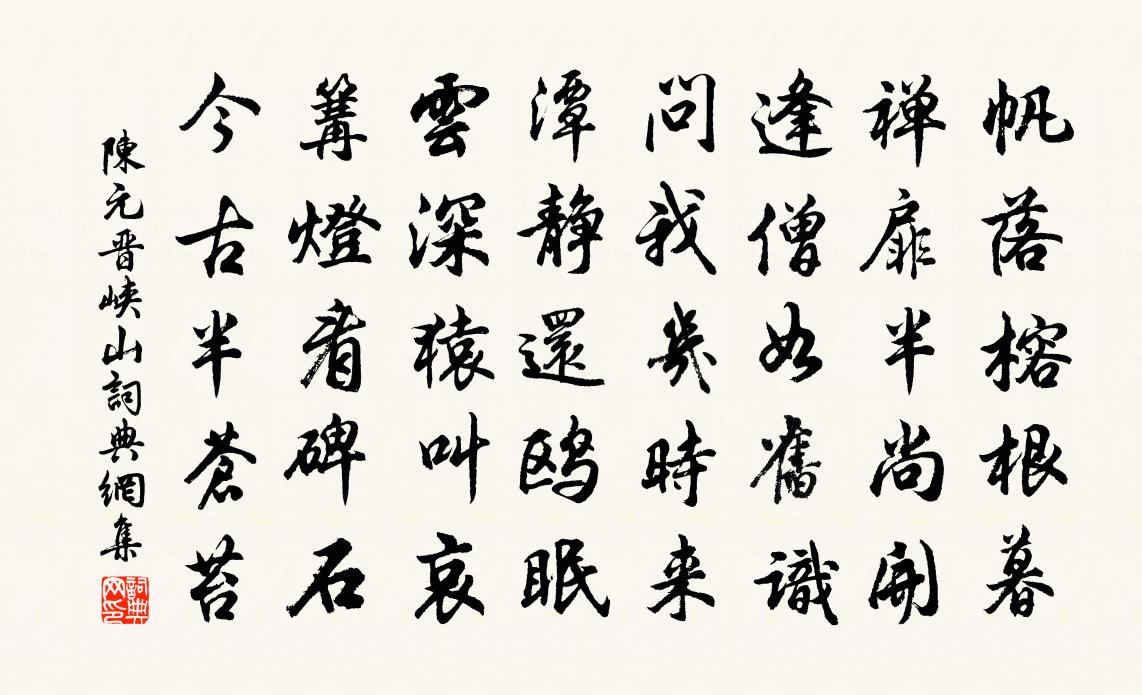 帆落榕根暮
禅扉半尚開
逢僧如舊識
問我幾時来
潭靜還鸥眠
雲深猿叫哀
篝燈看碑石
今古半蒼苔
陳元晋峡山詞典網集
詞典网印